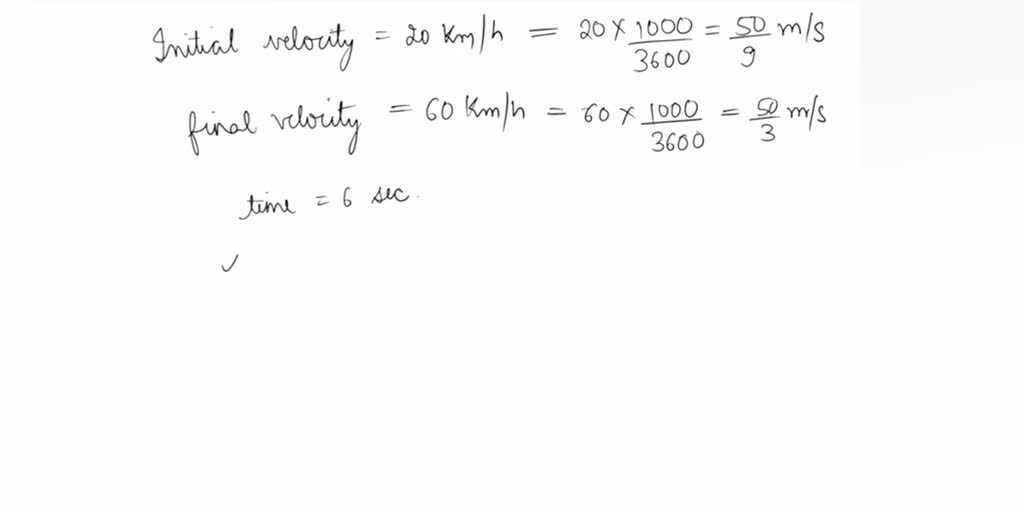 Initial velocity = 20 Km/h = 20 × 1000/3600 = 50/9 m/s
final velocity = 60 Km/h = 60 × 1000/3600 = 50/3 m/s
time = 6 sec.
✓